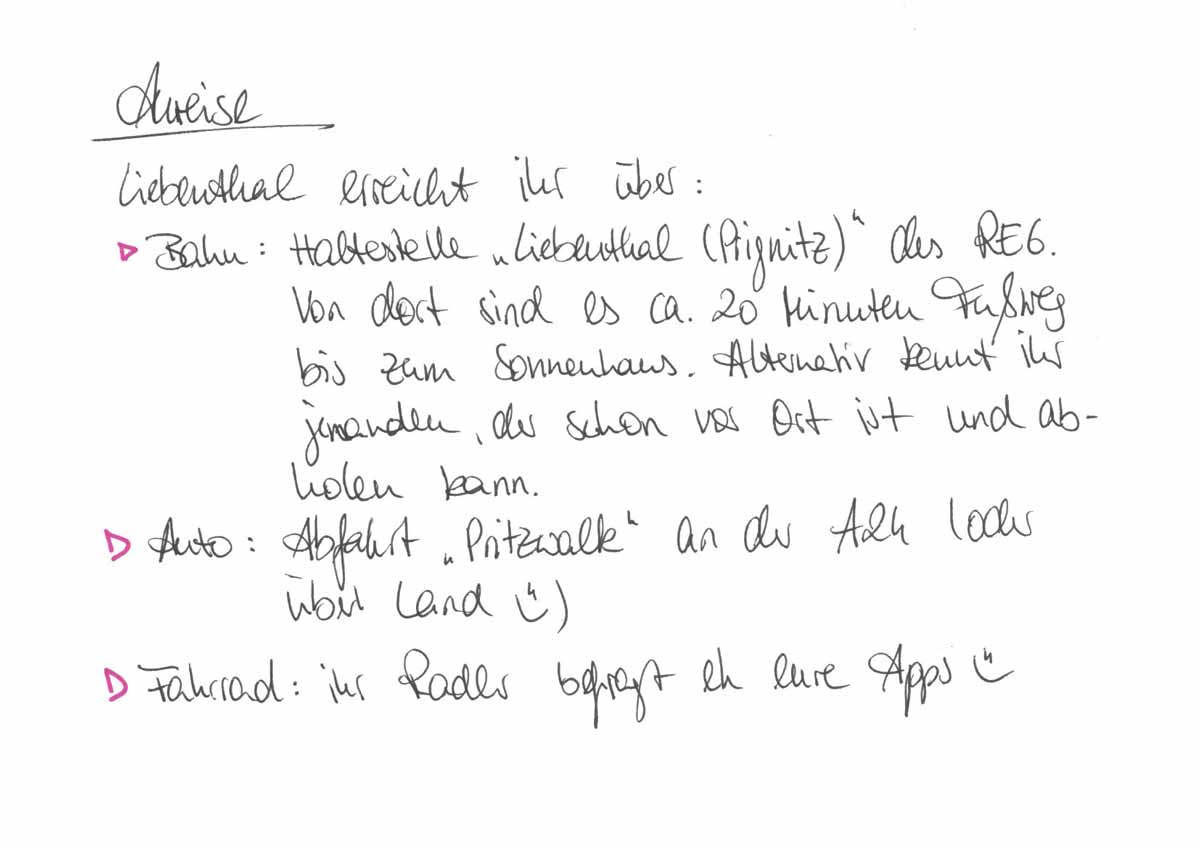 Anreise
Liebenthal erreicht ihr über:
▷ Bahn: Haltestelle „Liebenthal (Prignitz)“ des RE6.
Von dort sind es ca. 20 Minuten Fußweg
bis zum Sonnenhaus. Alternativ kennt ihr
jemanden, der schon vor Ort ist und ab-
holen kann.
▷ Auto: Abfahrt „Pritzwalk“ an der A24 (oder
über Land ☺)
▷ Fahrrad: ihr Radler befragt eh eure Apps ☺